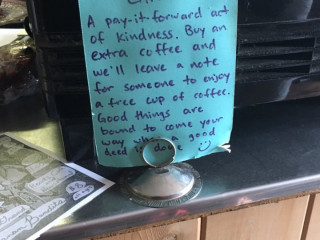 A pay-it-forward act
of kindness. Buy an
extra coffee and
we'll leave a note
for someone to enjoy
a free cup of coffee.
Good things are
bound to come your
way when a good
deed is done :)